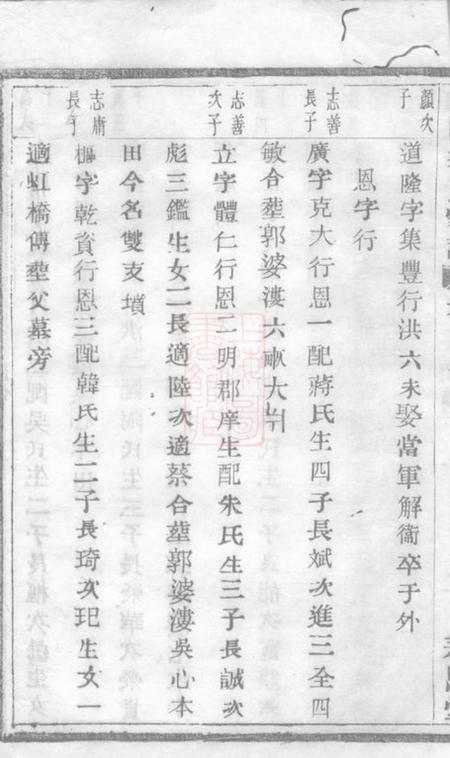 顔次子
道隆字集豐行洪六未娶當軍解衞卒于外
恩字行
志善長子
廣字克大行恩一配蔣氏生四子長斌次進三全四
敏合塟郭婆漊六畝大
志善次子
立字體仁行恩二明郡庠生配朱氏生三子長誠次
彪三鑑生女二長適陸次適蔡合塟郭婆漊吳心本
田今名雙支墳
志庸長子
樞字乾資行恩三配韓氏生二子長琦次玘生女一
適虹橋傅塟父墓旁